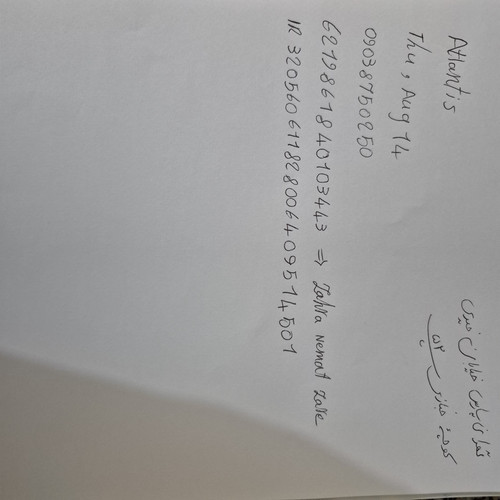 Atlantis
Thu, Aug 14
09038750250
6219861840103443 => Zahra Nemat Zare
IR 320560611828006409514501
خیابان خیری
کوچه خبازی